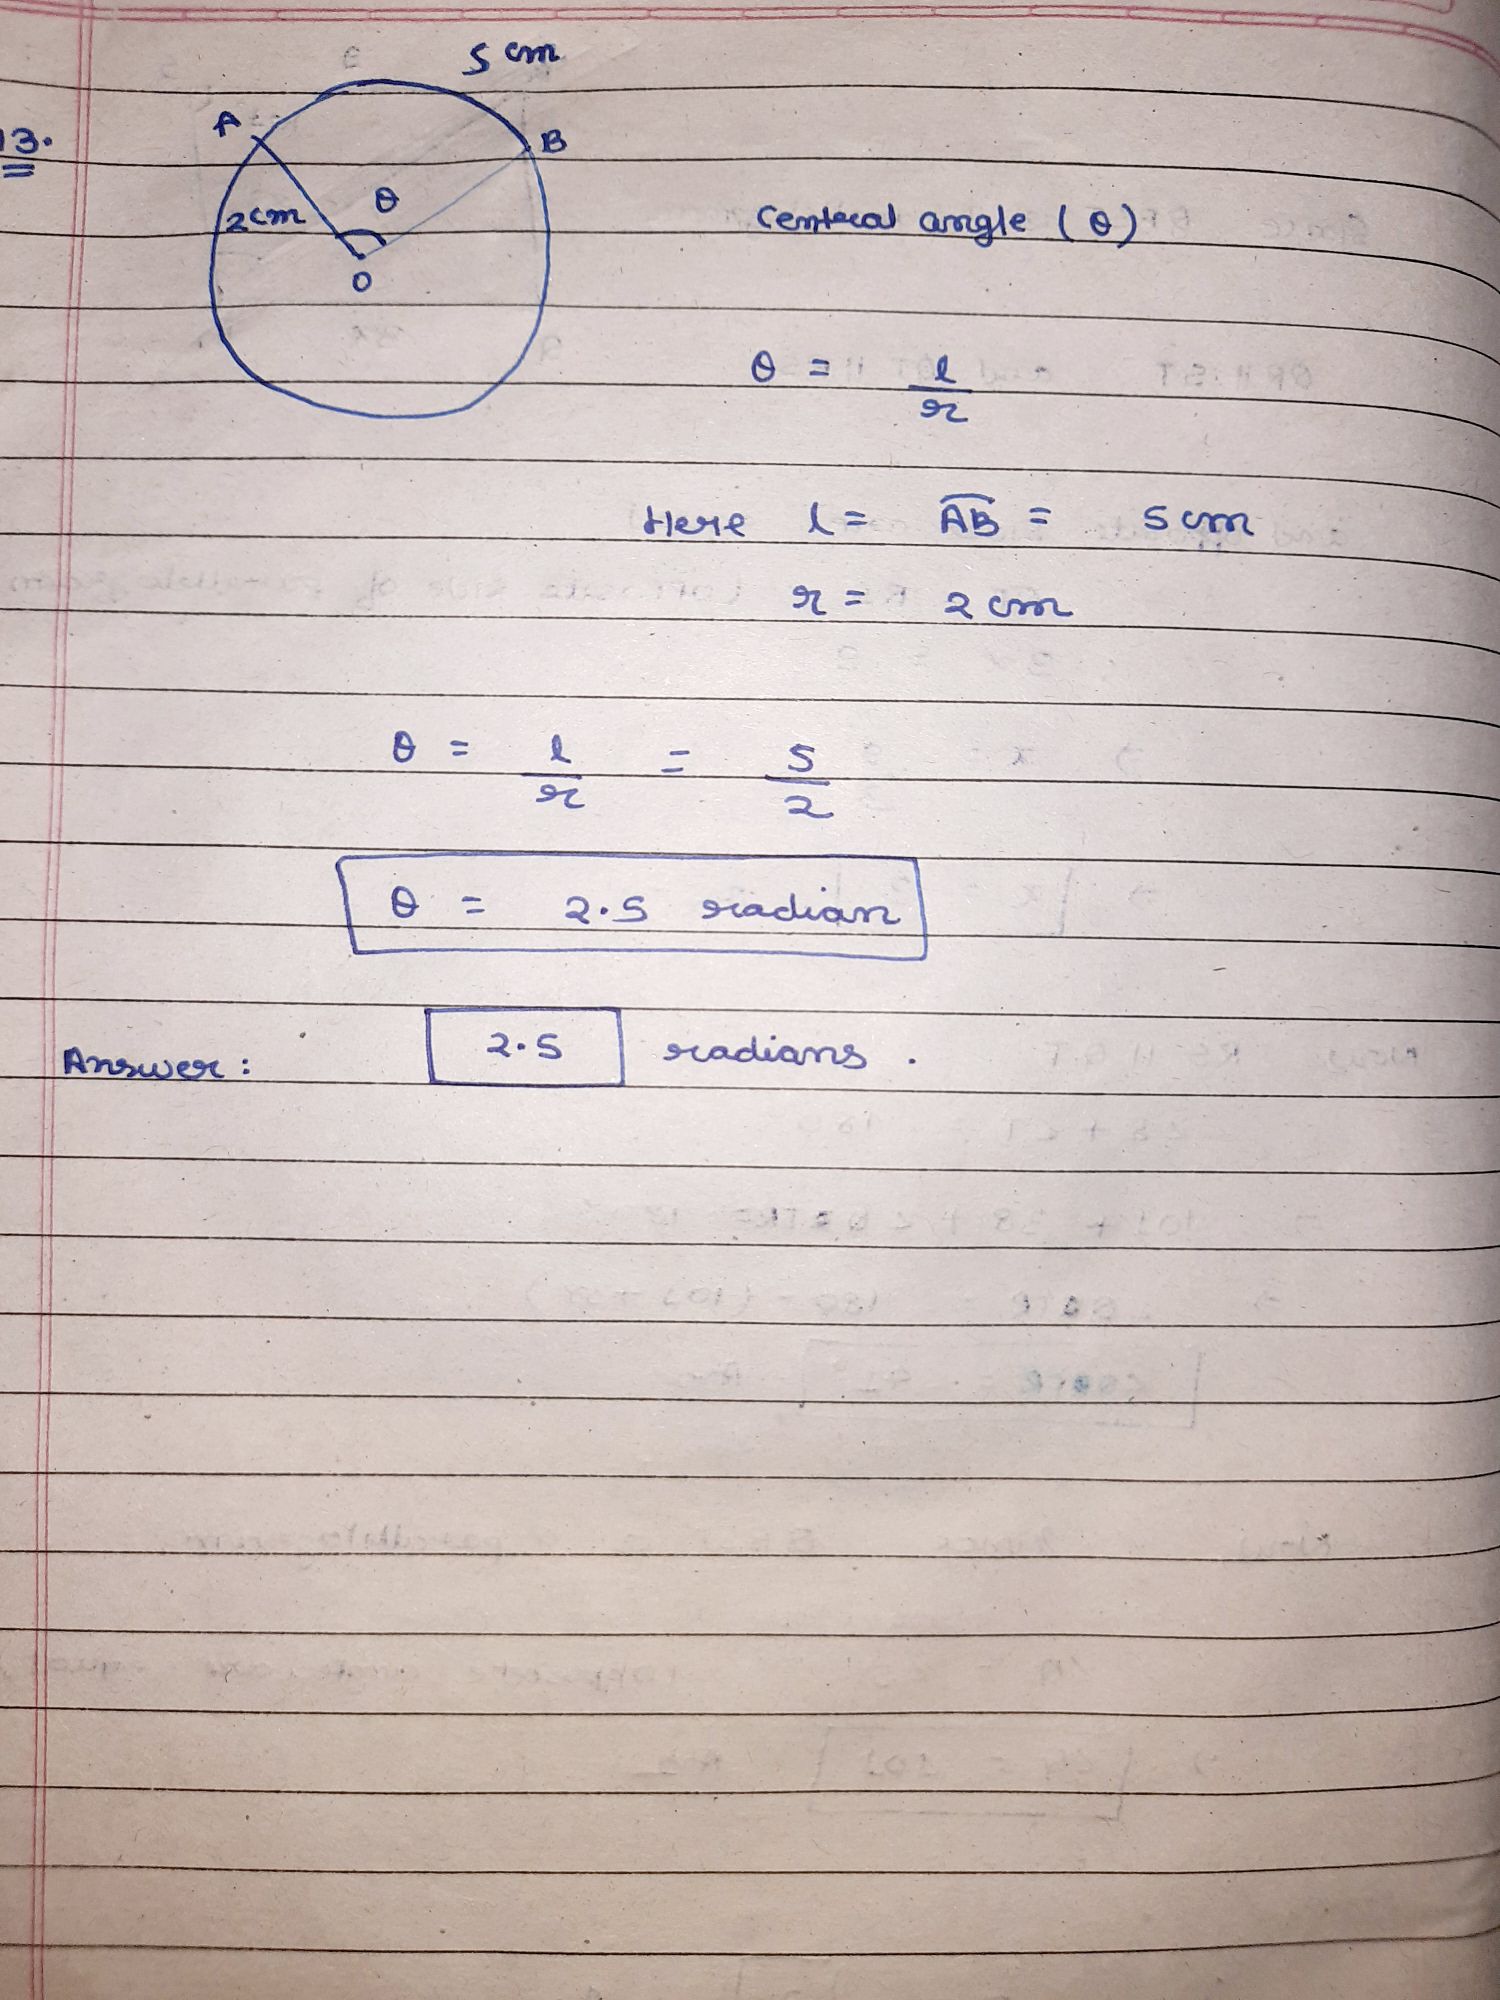 5 cm
A
13.
B
θ
2cm
Central angle (θ)
O
θ = l/r
Here l = AB = 5 cm
r = 2 cm
θ = l/r = 5/2
θ = 2.5 radian
Answer: 2.5 radians.